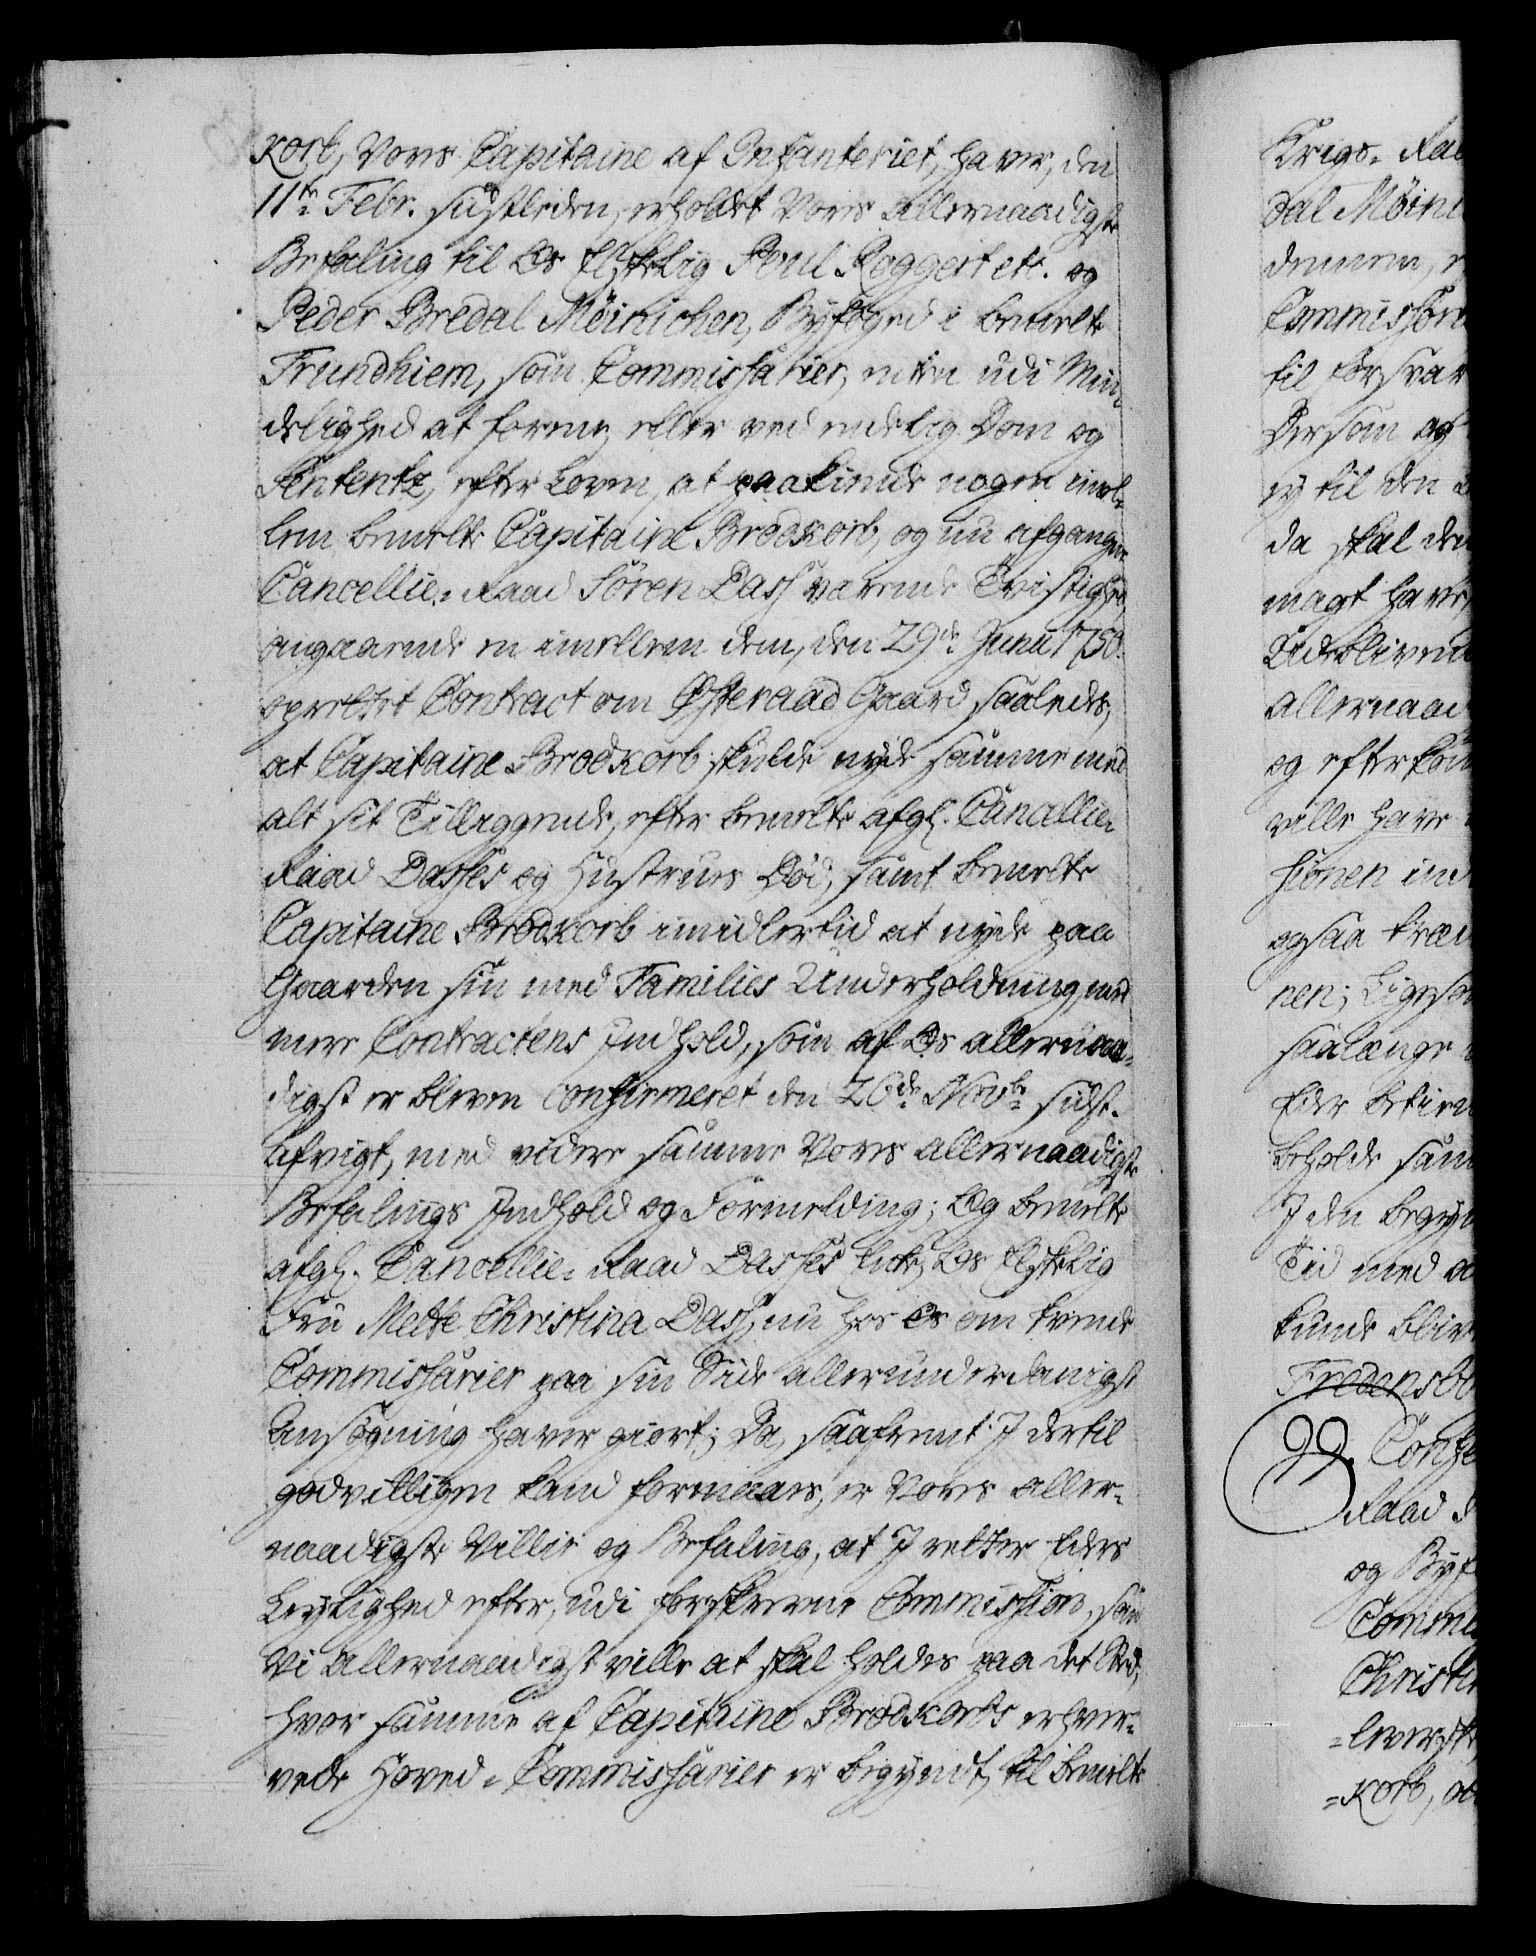 korb, Vores Capitaine af Infanteriet, haver, den
11te Febr. sidstleden, erholdet Vores allernaadigste
Befaling til Os Elskelig Poul Røggert etc. og
Peder Bredal Möinichen, Byfoged i bemelte
Trundhiem, som Commissarier, enten udi Min-
delighed at forene, eller ved endelig Dom og
Sententz, efter Loven, at paakiende nogen imel-
lem bemelte Capitaine Brodkorb, og nu afgangne
Cancellie-Raad Sören Dass værende Tvistighed,
angaaende en imellem dem, den 29de Junii 1750.
oprettet Contract om Østeraad Gaard saaledes,
at Capitaine Brodkorb skulde nyde samme med
alt sit Tilliggende, efter bemelte afgl. Cancellie-
Raad Dasses og Hustrues Död, samt bemelte
Capitaine Brodkorb imidlertid at nyde paa
Gaarden sin med Families Underholdning, med
mere Contractens Indhold, som af Os allernaa-
digst er bleven confirmeret den 26de Novbr sidst-
afvigt, med videre samme Vores allernaadigste
Befalings Indhold og Formelding; Og bemelte
afgl. Cancellie-Raad Dasses Enke, Os Elskelig
Fru Mette Christina Dass, nu hos Os om tvende
Commissarier paa sin Side allerunderdanigst
Ansögning haver giort; Da, saafremt I dertil
godvilligen kand formaaes, er Vores aller-
naadigste Villie og Befaling, at I retter Eders
Leylighed efter, udi forskrevne Commission, som
Vi allernaadigst ville at skal holdes paa det Sted,
hvor samme af Capitaine Brodkorbs erhver-
vede Hoved-Commissarier er begyndt, til bemelte
Krigs-Raa
dal Möini
dennem, e
Commissari
til forsvar
Dersom og
ey til den
da skal den
magt have,
Udeblivende
allernaad
og efterkom
ville have
sionen ind
ogsaa træ
nen; Ligesom
saalænge
Eder betien
beholde sam
I den begyn
Tid med a
kunde blive
Fredensb
99. Confe
Raad
og Byf
Comm
Christi
=leversk
=korb,